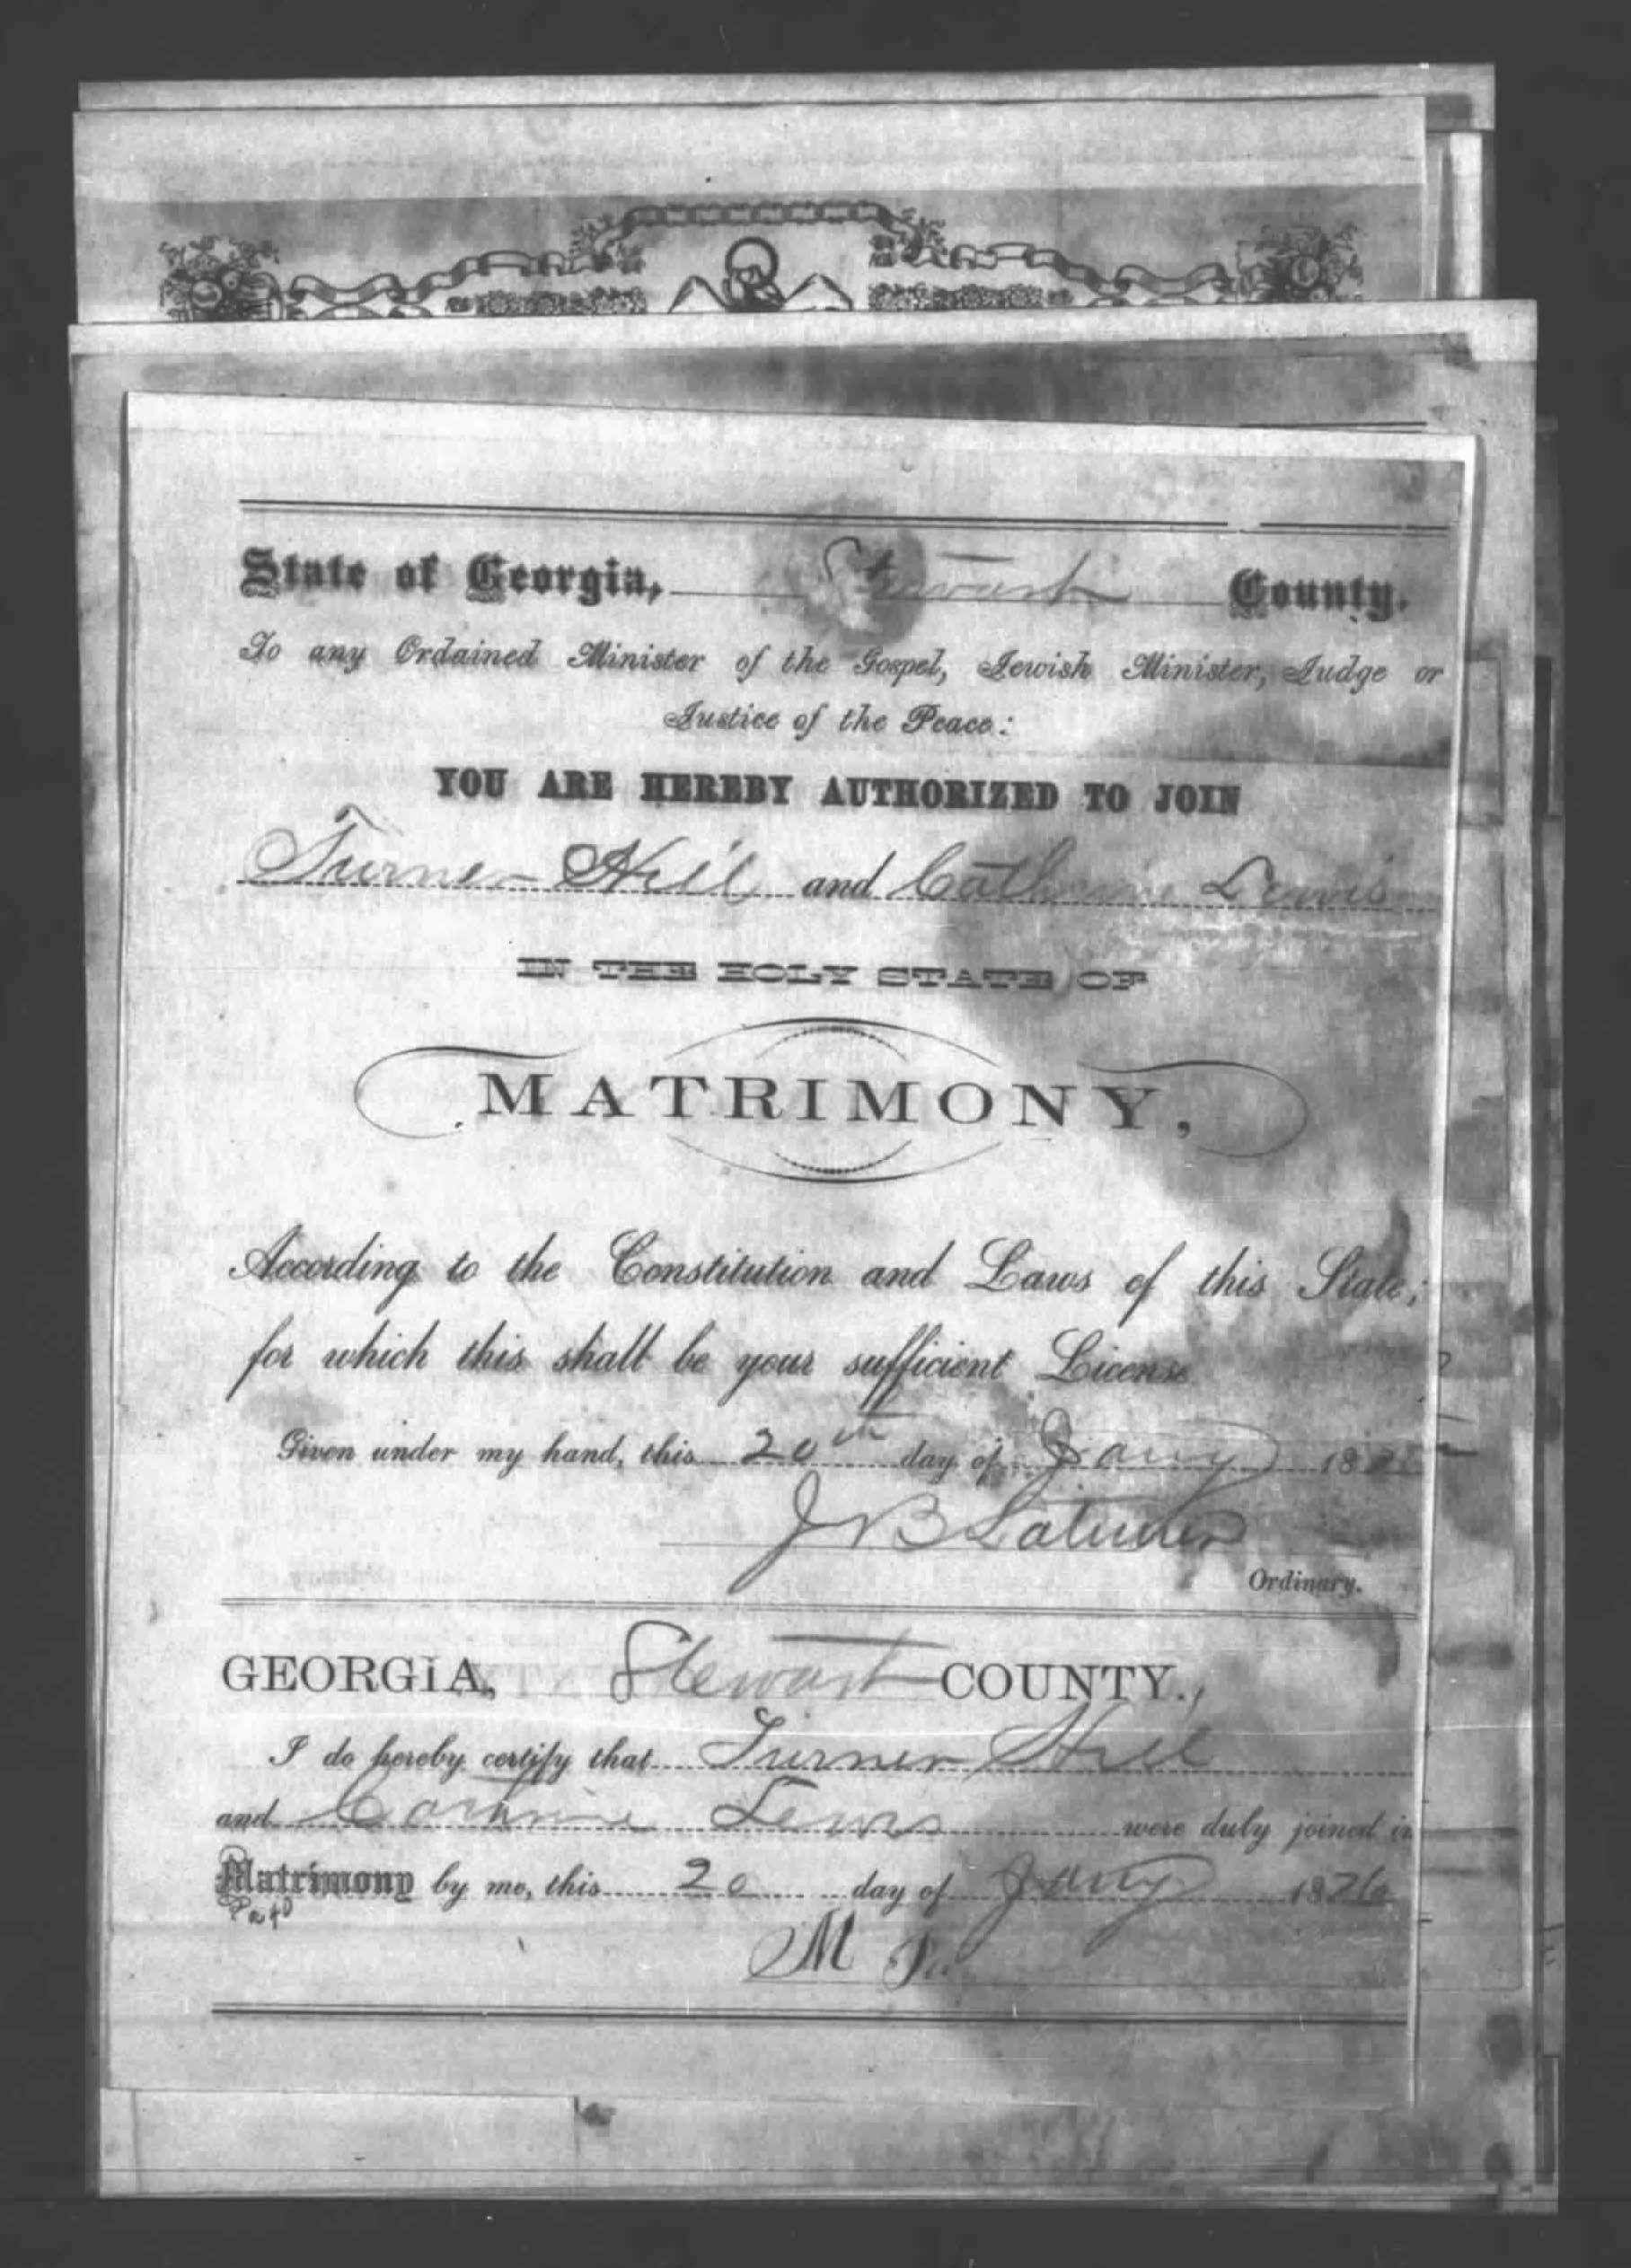 State of Georgia, Stewart County.
To any Ordained Minister of the Gospel, Jewish Minister, Judge or
Justice of the Peace:
YOU ARE HEREBY AUTHORIZED TO JOIN
Turner Hill and Catherine Lewis
IN THE HOLY STATE OF
MATRIMONY,
According to the Constitution and Laws of this State;
for which this shall be your sufficient License
Given under my hand, this 20th day of Jany 18
J B Latimer
Ordinary.
GEORGIA, Stewart COUNTY.,
I do hereby certify that Turner Hill
and Lewis were duly joined in
Matrimony by me, this 20 day of Jany 1876
M